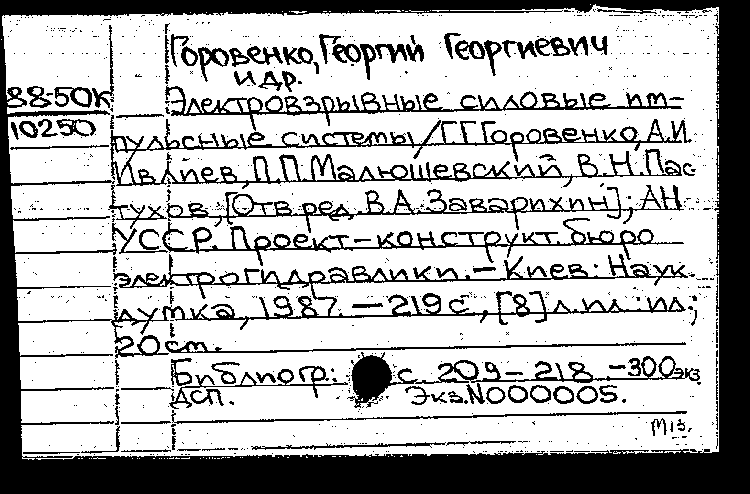 Горовенко, Георгий Георгиевич
и др.
88-50К
10250
Электровзрывные силовые им-
пульсные системы/Г.Г.Горовенко, А.И.
Ивлиев, П.П.Малюшевский, В.Н.Пас
тухов, [Отв.ред. В.А.Заварихин]; АН
УССР. Проект-конструкт. бюро
электрогидравлики. – Киев: Наук.
думка, 1987. – 219 с., [8] л.ил.:ил;
20 см.
Библиогр: с. 209-218. – 300 экз.
ДСП. Экз.N000005.